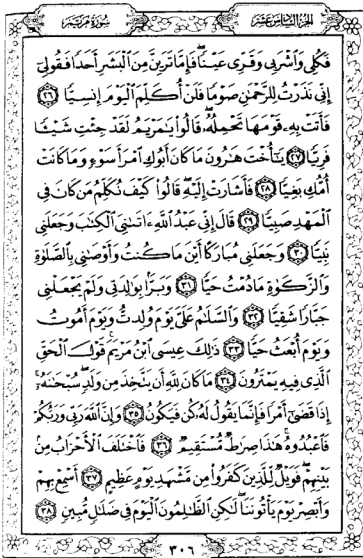 الجزء السادس عشر
سورة مريم
فَكُلِي وَٱشۡرَبِي وَقَرِّي عَيۡنٗاۖ فَإِمَّا تَرَيِنَّ مِنَ ٱلۡبَشَرِ أَحَدٗا فَقُولِيٓ
إِنِّي نَذَرۡتُ لِلرَّحۡمَٰنِ صَوۡمٗا فَلَنۡ أُكَلِّمَ ٱلۡيَوۡمَ إِنسِيّٗا ٢٦
فَأَتَتۡ بِهِۦ قَوۡمَهَا تَحۡمِلُهُۥۖ قَالُواْ يَٰمَرۡيَمُ لَقَدۡ جِئۡتِ شَيۡـٔٗا
فَرِيّٗا ٢٧ يَٰٓأُخۡتَ هَٰرُونَ مَا كَانَ أَبُوكِ ٱمۡرَأَ سَوۡءٖ وَمَا كَانَتۡ
أُمُّكِ بَغِيّٗا ٢٨ فَأَشَارَتۡ إِلَيۡهِۖ قَالُواْ كَيۡفَ نُكَلِّمُ مَن كَانَ فِي
ٱلۡمَهۡدِ صَبِيّٗا ٢٩ قَالَ إِنِّي عَبۡدُ ٱللَّهِ ءَاتَىٰنِيَ ٱلۡكِتَٰبَ وَجَعَلَنِي
نَبِيّٗا ٣٠ وَجَعَلَنِي مُبَارَكًا أَيۡنَ مَا كُنتُ وَأَوۡصَٰنِي بِٱلصَّلَوٰةِ
وَٱلزَّكَوٰةِ مَا دُمۡتُ حَيّٗا ٣١ وَبَرَّۢا بِوَٰلِدَتِي وَلَمۡ يَجۡعَلۡنِي
جَبَّارٗا شَقِيّٗا ٣٢ وَٱلسَّلَٰمُ عَلَيَّ يَوۡمَ وُلِدتُّ وَيَوۡمَ أَمُوتُ
وَيَوۡمَ أُبۡعَثُ حَيّٗا ٣٣ ذَٰلِكَ عِيسَى ٱبۡنُ مَرۡيَمَۖ قَوۡلَ ٱلۡحَقِّ
ٱلَّذِي فِيهِ يَمۡتَرُونَ ٣٤ مَا كَانَ لِلَّهِ أَن يَتَّخِذَ مِن وَلَدٖۖ سُبۡحَٰنَهُۥٓۚ
إِذَا قَضَىٰٓ أَمۡرٗا فَإِنَّمَا يَقُولُ لَهُۥ كُن فَيَكُونُ ٣٥ وَإِنَّ ٱللَّهَ رَبِّي وَرَبُّكُمۡ
فَٱعۡبُدُوهُۚ هَٰذَا صِرَٰطٞ مُّسۡتَقِيمٞ ٣٦ فَٱخۡتَلَفَ ٱلۡأَحۡزَابُ مِنۢ
بَيۡنِهِمۡۖ فَوَيۡلٞ لِّلَّذِينَ كَفَرُواْ مِن مَّشۡهَدِ يَوۡمٍ عَظِيمٍ ٣٧ أَسۡمِعۡ بِهِمۡ
وَأَبۡصِرۡ يَوۡمَ يَأۡتُونَنَاۖ لَٰكِنِ ٱلظَّٰلِمُونَ ٱلۡيَوۡمَ فِي ضَلَٰلٖ مُّبِينٖ ٣٨
٣٠٦